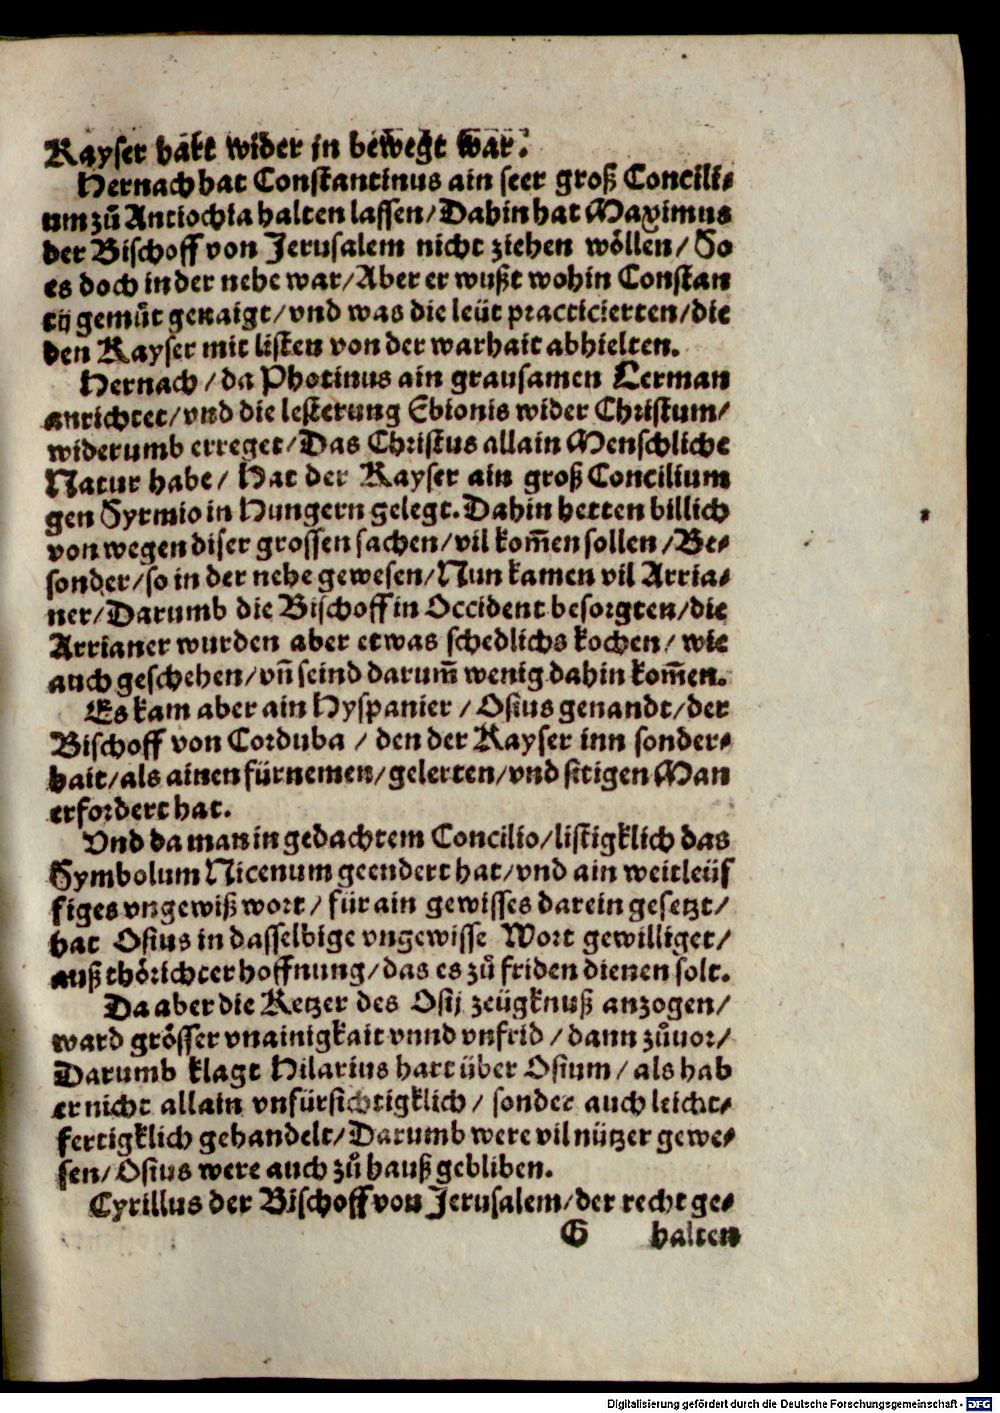 Kayser hart wider in bewegt war.
Hernach hat Constantinus ain seer groß Concili⸗
um zů Antiochia halten lassen/Dahin hat Maximus
der Bischoff von Jerusalem nicht ziehen wöllen/So
es doch in der nehe war/Aber er wußt wohin Constan
tij gemůt genaigt/vnd was die leüt practicierten/die
den Kayser mit listen von der warhait abhielten.
Hernach/da Photinus ain grausamen Lerman
anrichtet/vnd die lesterung Ebionis wider Christum/
widerumb erreget/Das Christus allain Menschliche
Natur habe/Hat der Kayser ain groß Concilium
gen Syrmio in Hungern gelegt.Dahin hetten billich
von wegen diser grossen sachen/vil kom̄en sollen/Be⸗
sonder/so in der nehe gewesen/Nun kamen vil Arria⸗
ner/Darumb die Bischoff in Occident besorgten/die
Arrianer wurden aber etwas schedlichs kochen/wie
auch geschehen/vn̄ seind darum̄ wenig dahin kom̄en.
Es kam aber ain Hyspanier/Osius genandt/der
Bischoff von Corduba/den der Kayser inn sonder⸗
hait/als ainen fürnemen/gelerten/vnd sitigen Man
erfordert hat.
Vnd da man in gedachtem Concilio/listigklich das
Symbolum Nicenum geendert hat/vnd ain weitleüf
figes vngewiß wort/für ain gewisses darein gesetzt/
hat Osius in dasselbige vngewisse Wort gewilliget/
auß thörichter hoffnung/das es zů friden dienen solt.
Da aber die Ketzer des Osij zeügknuß anzogen/
ward grösser vnainigkait vnnd vnfrid/dann zůuor/
Darumb klagt Hilarius hart über Osium/als hab
er nicht allain vnfürsichtigklich/sonder auch leicht⸗
fertigklich gehandelt/Darumb were vil nützer gewe⸗
sen/Osius were auch zů hauß gebliben.
Cyrillus der Bischoff von Jerusalem/der recht ge⸗
G halten
Digitalisierung gefördert durch die Deutsche Forschungsgemeinschaft - DFG